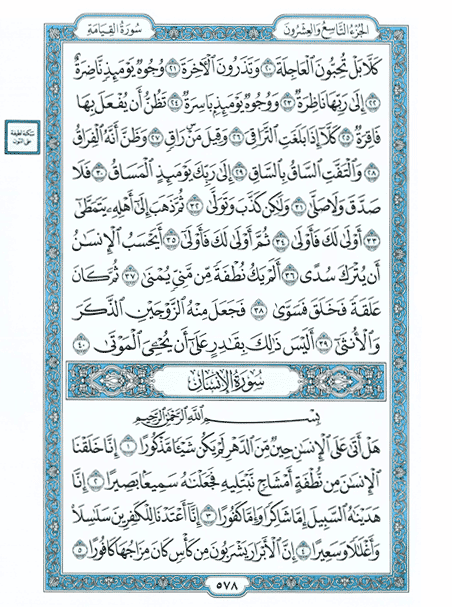 سُورَةُ القِيَامَةِ
الجُزْءُ التَّاسِعُ وَالعِشْرُونَ
كَلَّا بَلْ تُحِبُّونَ الْعَاجِلَةَ ۝٢٠ وَتَذَرُونَ الْآخِرَةَ ۝٢١ وُجُوهٌ يَوْمَئِذٍ نَّاضِرَةٌ
۝٢٢ إِلَىٰ رَبِّهَا نَاظِرَةٌ ۝٢٣ وَوُجُوهٌ يَوْمَئِذٍ بَاسِرَةٌ ۝٢٤ تَظُنُّ أَن يُفْعَلَ بِهَا
فَاقِرَةٌ ۝٢٥ كَلَّا إِذَا بَلَغَتِ التَّرَاقِيَ ۝٢٦ وَقِيلَ مَنْ ۜ رَاقٍ ۝٢٧ وَظَنَّ أَنَّهُ الْفِرَاقُ
۝٢٨ وَالْتَفَّتِ السَّاقُ بِالسَّاقِ ۝٢٩ إِلَىٰ رَبِّكَ يَوْمَئِذٍ الْمَسَاقُ ۝٣٠ فَلَا
صَدَّقَ وَلَا صَلَّىٰ ۝٣١ وَلَٰكِن كَذَّبَ وَتَوَلَّىٰ ۝٣٢ ثُمَّ ذَهَبَ إِلَىٰ أَهْلِهِ يَتَمَطَّىٰ
۝٣٣ أَوْلَىٰ لَكَ فَأَوْلَىٰ ۝٣٤ ثُمَّ أَوْلَىٰ لَكَ فَأَوْلَىٰ ۝٣٥ أَيَحْسَبُ الْإِنسَانُ
أَن يُتْرَكَ سُدًى ۝٣٦ أَلَمْ يَكُ نُطْفَةً مِّن مَّنِيٍّ يُمْنَىٰ ۝٣٧ ثُمَّ كَانَ
عَلَقَةً فَخَلَقَ فَسَوَّىٰ ۝٣٨ فَجَعَلَ مِنْهُ الزَّوْجَيْنِ الذَّكَرَ
وَالْأُنثَىٰ ۝٣٩ أَلَيْسَ ذَٰلِكَ بِقَادِرٍ عَلَىٰ أَن يُحْيِيَ الْمَوْتَىٰ ۝٤٠
سُورَةُ الإِنسَانِ
بِسْمِ اللَّهِ الرَّحْمَٰنِ الرَّحِيمِ
هَلْ أَتَىٰ عَلَى الْإِنسَانِ حِينٌ مِّنَ الدَّهْرِ لَمْ يَكُن شَيْئًا مَّذْكُورًا ۝١ إِنَّا خَلَقْنَا
الْإِنسَانَ مِن نُّطْفَةٍ أَمْشَاجٍ نَّبْتَلِيهِ فَجَعَلْنَاهُ سَمِيعًا بَصِيرًا ۝٢ إِنَّا
هَدَيْنَاهُ السَّبِيلَ إِمَّا شَاكِرًا وَإِمَّا كَفُورًا ۝٣ إِنَّا أَعْتَدْنَا لِلْكَافِرِينَ سَلَاسِلَا
وَأَغْلَالًا وَسَعِيرًا ۝٤ إِنَّ الْأَبْرَارَ يَشْرَبُونَ مِن كَأْسٍ كَانَ مِزَاجُهَا كَافُورًا ۝٥
٥٧٨
سكتة لطيفة
على النون